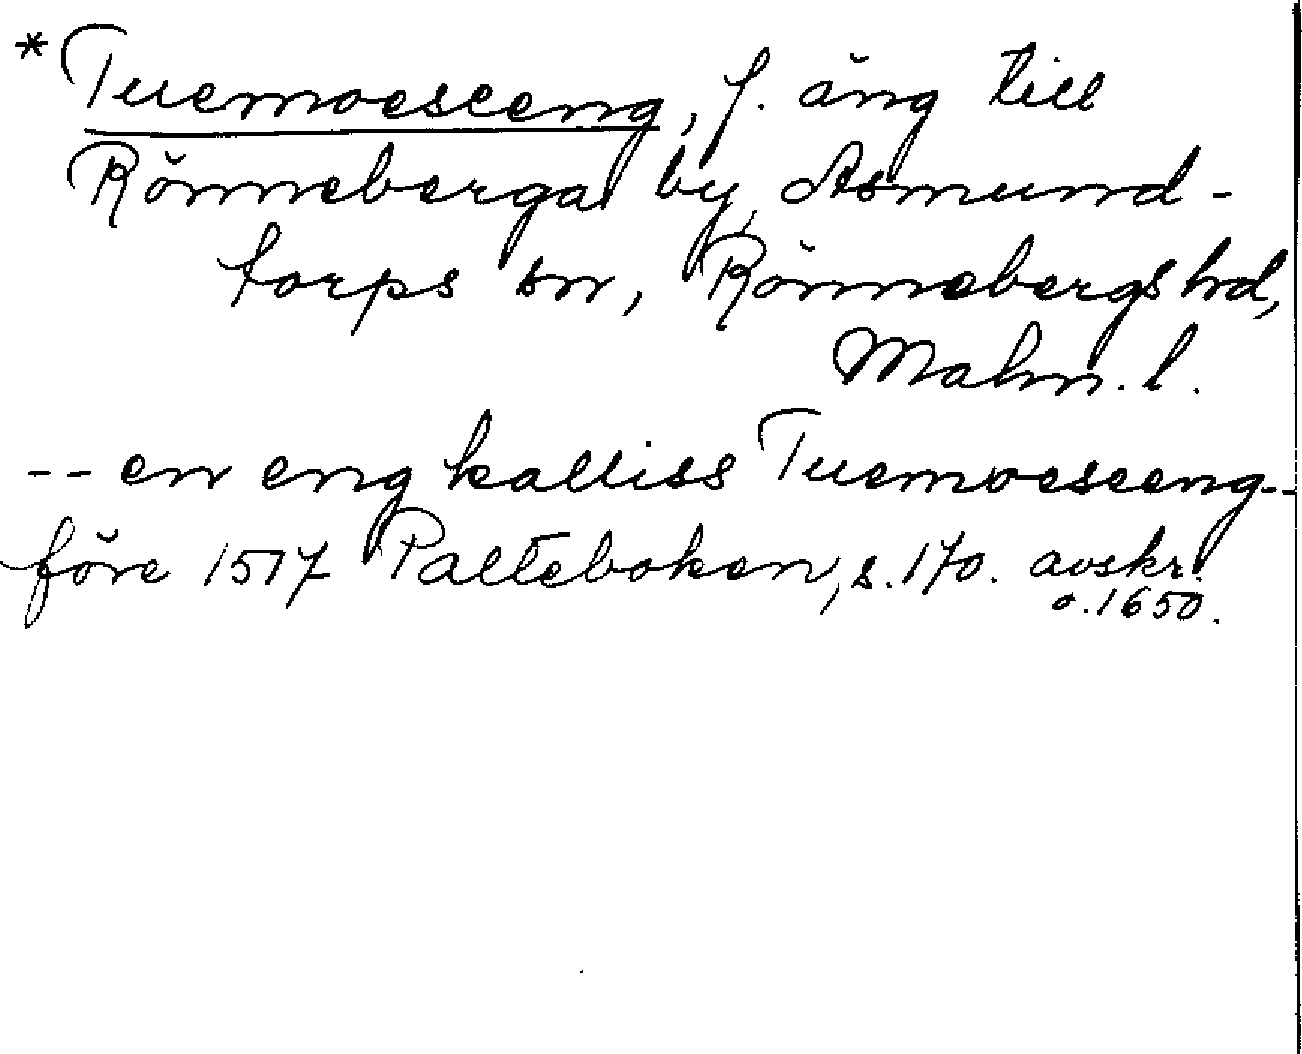 * Tuemoeseeng, f. äng till
Rönneberga by, Asmund-
torps sn, Rönnebergs hd,
Malm. l.
-- en eng kalliss Tuemoeseeng--
före 1517 Palteboken, s. 170. avskr.
o. 1650.